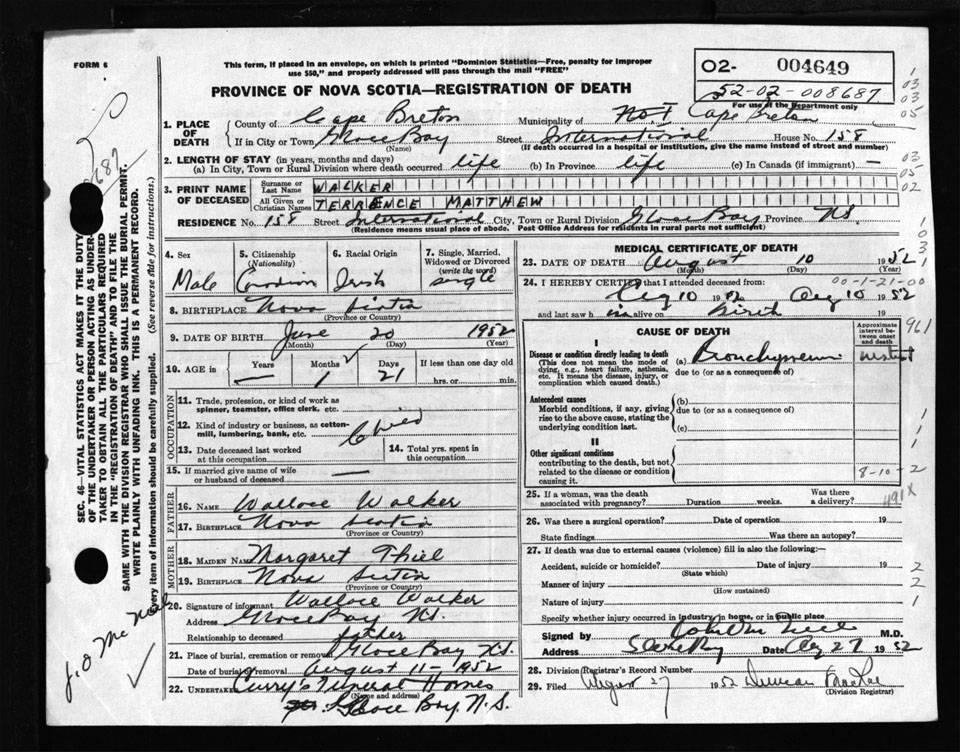 FORM 6
This form, if placed in an envelope, on which is printed "Dominion Statistics—Free, penalty for improper
use $50," and properly addressed will pass through the mail "FREE"
O2- 004649
52-02-008687
For use of the Department only
PROVINCE OF NOVA SCOTIA—REGISTRATION OF DEATH
1. PLACE OF DEATH
County of Cape Breton Municipality of Cape Breton
If in City or Town Glace Bay Street International House No. 158
(Name) (If death occurred in a hospital or institution, give the name instead of street and number)
2. LENGTH OF STAY (in years, months and days)
(a) In City, Town or Rural Division where death occurred life (b) In Province life (c) In Canada (if immigrant) —
3. PRINT NAME OF DECEASED
Surname or Last Name WALKER
All Given or Christian Names TERRENCE MATTHEW
RESIDENCE No. 158 Street International City, Town or Rural Division Glace Bay Province N.S.
(Residence means usual place of abode. Post Office Address for residents in rural parts not sufficient)
4. Sex Male
5. Citizenship (Nationality) Canadian
6. Racial Origin Irish
7. Single, Married, Widowed or Divorced (write the word) single
8. BIRTHPLACE Nova Scotia
(Province or Country)
9. DATE OF BIRTH June 20 1952
(Month) (Day) (Year)
10. AGE in Years — Months 1 Days 21 If less than one day old
hrs. or min.
OCCUPATION
11. Trade, profession, or kind of work as
spinner, teamster, office clerk, etc.
12. Kind of industry or business, as cotton-
mill, lumbering, bank, etc. Child
13. Date deceased last worked
at this occupation
14. Total yrs. spent in
this occupation
15. If married give name of wife
or husband of deceased —
FATHER
16. NAME Wallace Walker
17. BIRTHPLACE Nova Scotia
(Province or Country)
MOTHER
18. MAIDEN NAME Margaret Thiel
19. BIRTHPLACE Nova Scotia
(Province or Country)
20. Signature of informant Wallace Walker
Address Glace Bay N.S.
Relationship to deceased father
21. Place of burial, cremation or removal Glace Bay N.S.
Date of burial or removal August 11 - 1952
22. UNDERTAKER Curry's Funeral Homes
(Name and address)
Glace Bay. N.S.
MEDICAL CERTIFICATE OF DEATH
23. DATE OF DEATH August 10 1952
(Month) (Day) (Year)
24. I HEREBY CERTIFY that I attended deceased from: 00-1-21-00
Aug 10 1952 Aug 10 1952
and last saw h im alive on Birth 19
CAUSE OF DEATH
Approximate interval between onset and death
I
Disease or condition directly leading to death
(This does not mean the mode of
dying, e.g., heart failure, asthenia,
etc. It means the disease, injury, or
complication which caused death.)
(a)
due to (or as a consequence of)
Antecedent causes
Morbid conditions, if any, giving
rise to the above cause, stating the
underlying condition last.
(b)
due to (or as a consequence of)
(c)
II
Other significant conditions
contributing to the death, but not
related to the disease or condition
causing it.
8-10-2
491X
25. If a woman, was the death
associated with pregnancy? Duration weeks. Was there
a delivery?
26. Was there a surgical operation? Date of operation 19
State findings Was there an autopsy?
27. If death was due to external causes (violence) fill in also the following:—
Accident, suicide or homicide? Date of injury 19
(State which)
Manner of injury
(How sustained)
Nature of injury
Specify whether injury occurred in industry, in home, or in public place
Signed by M.D.
Address Glace Bay Date Aug 27 1952
28. Division Registrar's Record Number
29. Filed August 27 1952 Duncan
(Division Registrar)
SEC. 46—VITAL STATISTICS ACT MAKES IT THE DUTY
OF THE UNDERTAKER OR PERSON ACTING AS UNDER-
TAKER TO OBTAIN ALL THE PARTICULARS REQUIRED
IN THE "REGISTRATION OF DEATH" AND TO FILE THE
SAME WITH THE DIVISION REGISTRAR WHO SHALL ISSUE THE BURIAL PERMIT.
WRITE PLAINLY WITH UNFADING INK. THIS IS A PERMANENT RECORD.
Every item of information should be carefully supplied. (See reverse side for instructions.)